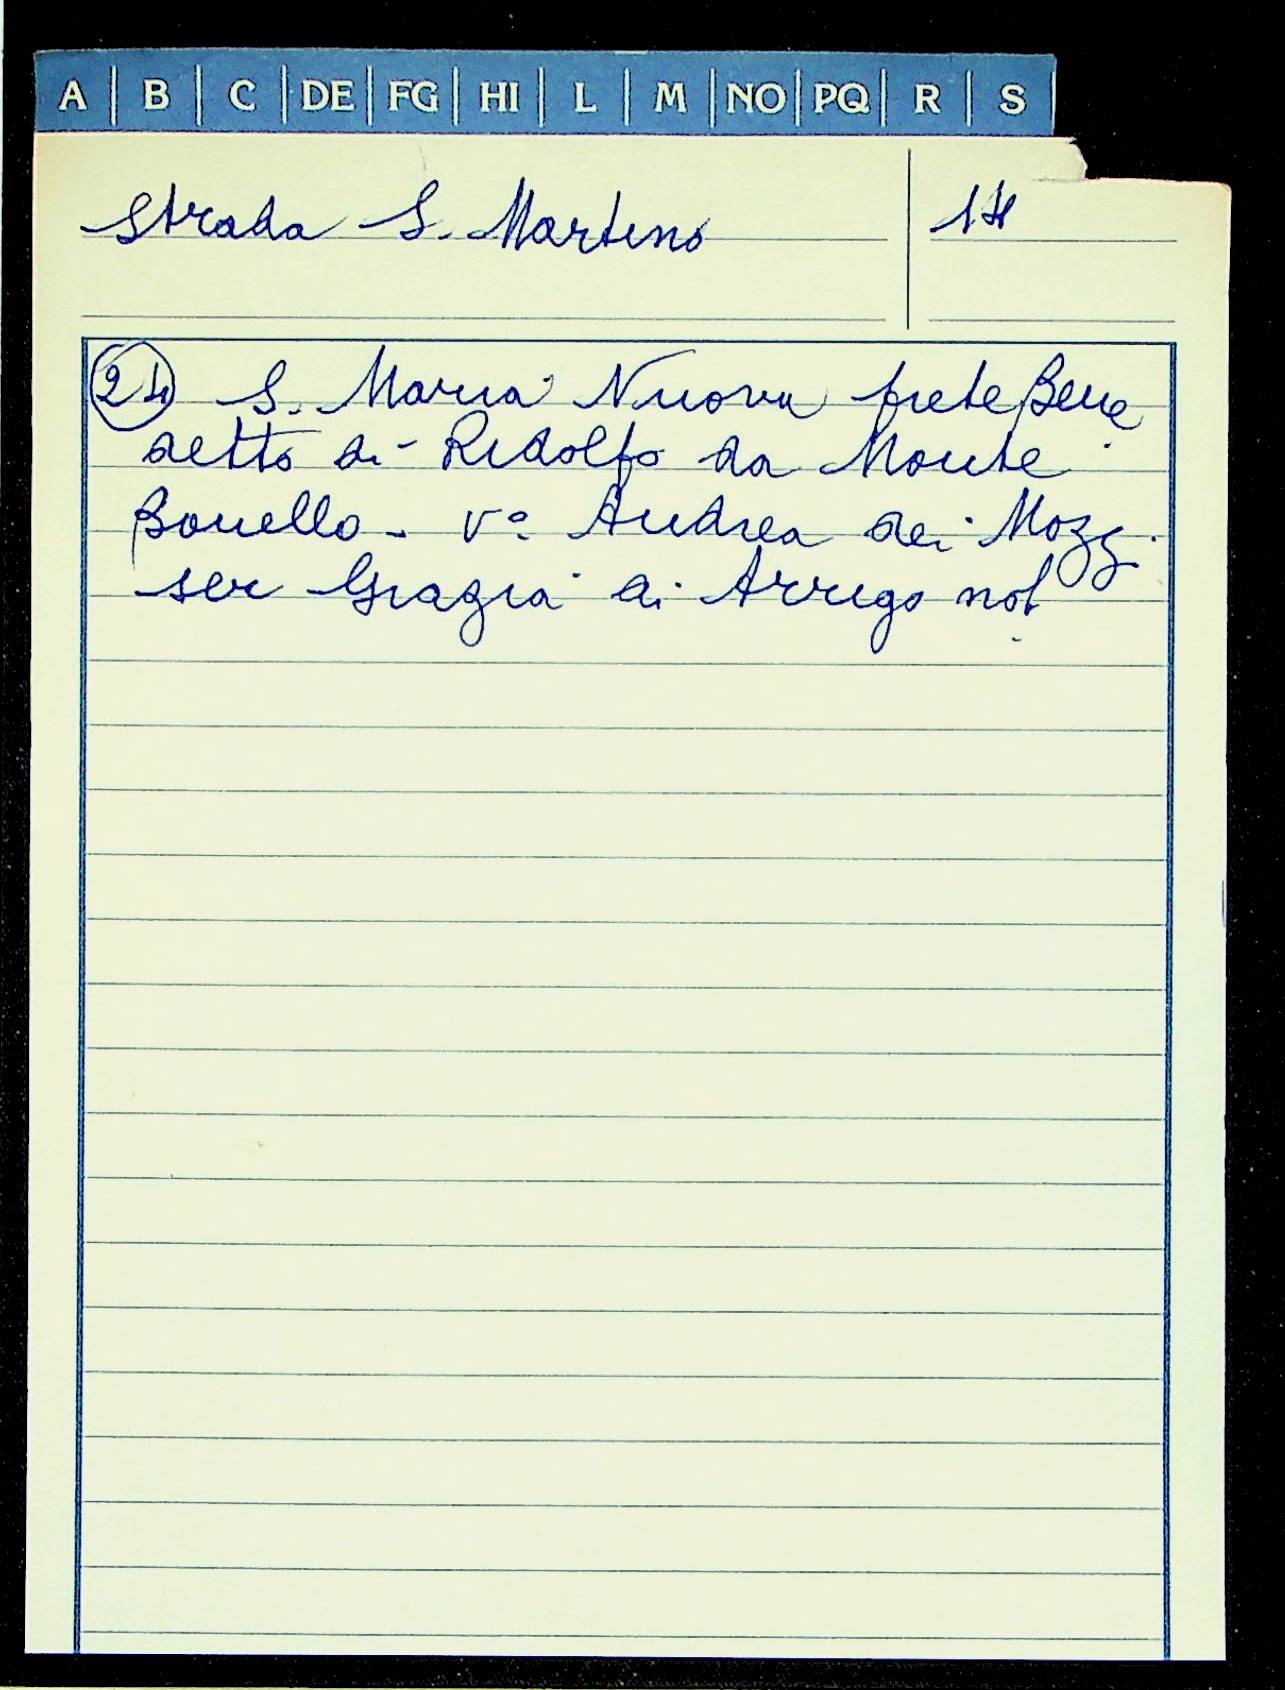 A B C DE FG HI L M NO PQ R S
Strada S. Martino
24 S. Maria Nuova prete Bene
detto di Ridolfo da Monte
Bonello - vº Andrea dei Mozzi
ser Grazia di Arrigo not